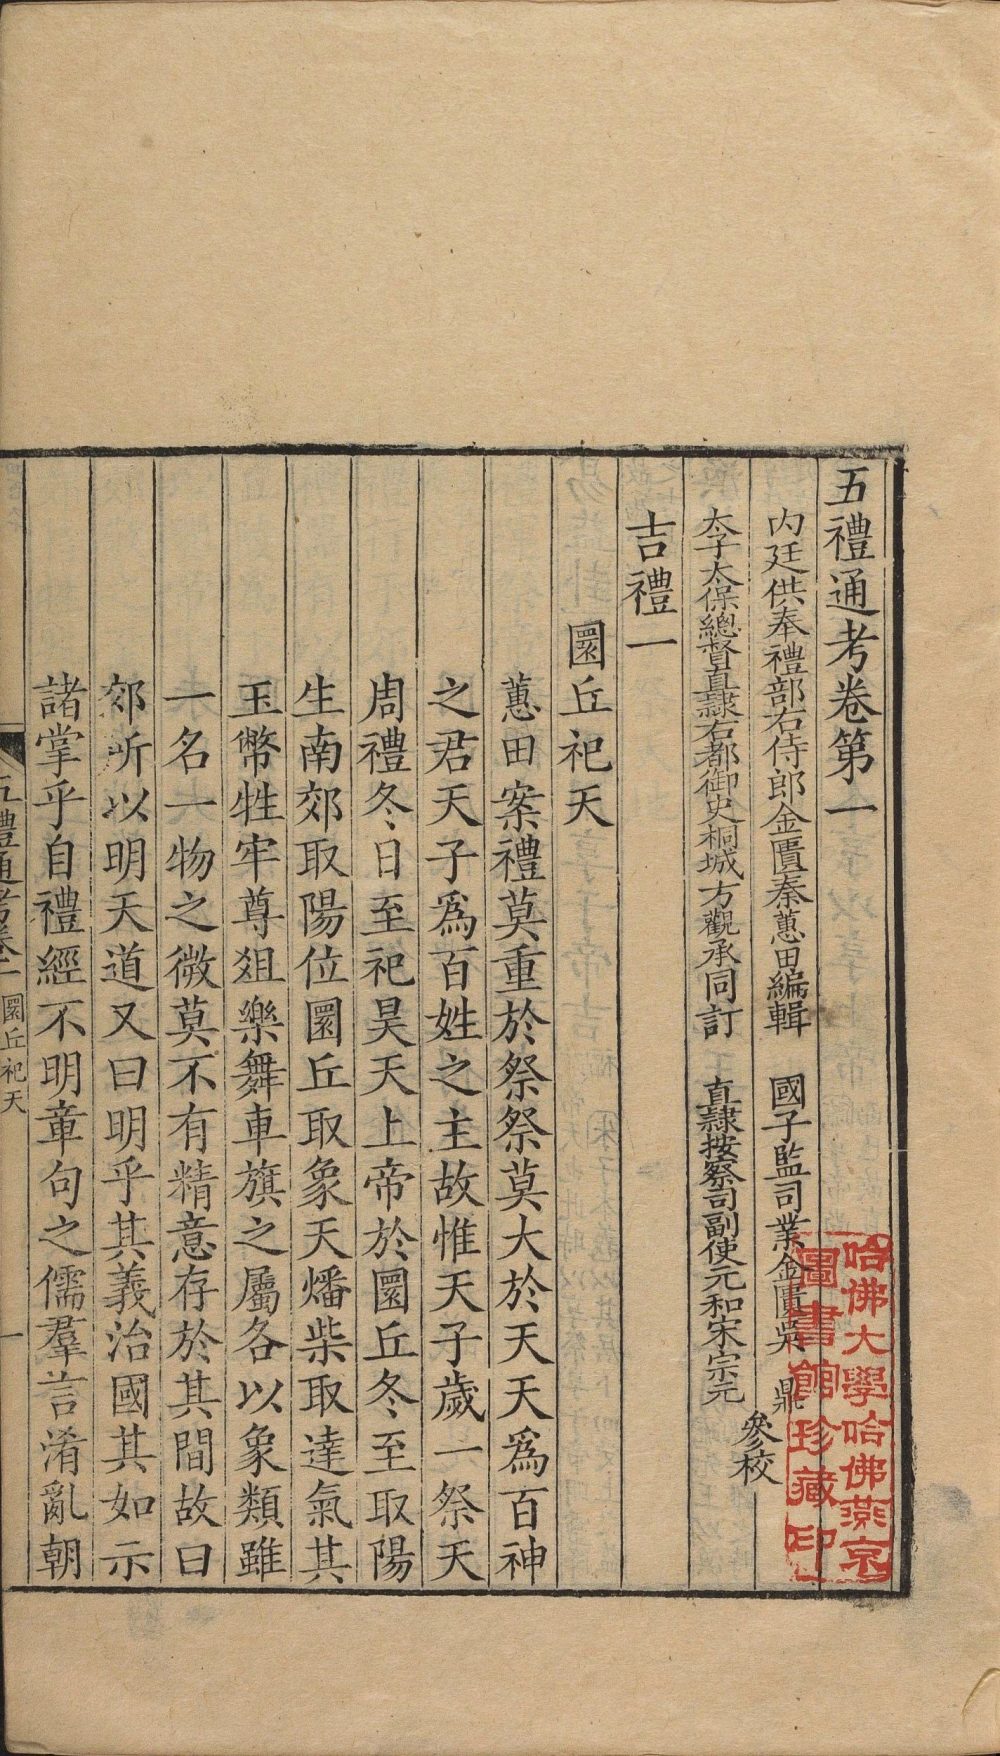 五禮通考卷第一
內廷供奉禮部右侍郎金匱秦蕙田編輯　國子監司業金匱吳　鼎
太子太保總督直隸右都御史桐城方觀承同訂　直隸按察司副使元和宋宗元
參校
吉禮一
圜丘祀天
蕙田案禮莫重於祭祭莫大於天天爲百神
之君天子爲百姓之主故惟天子歲一祭天
周禮冬日至祀昊天上帝於圜丘冬至取陽
生南郊取陽位圜丘取象天燔柴取達氣其
玉幣牲牢尊俎樂舞車旗之屬各以象類雖
一名一物之微莫不有精意存於其間故曰
郊所以明天道又曰明乎其義治國其如示
諸掌乎自禮經不明章句之儒羣言淆亂朝
五禮通考卷一　圜丘祀天　一
哈佛大學哈佛燕京
圖書館珍藏印